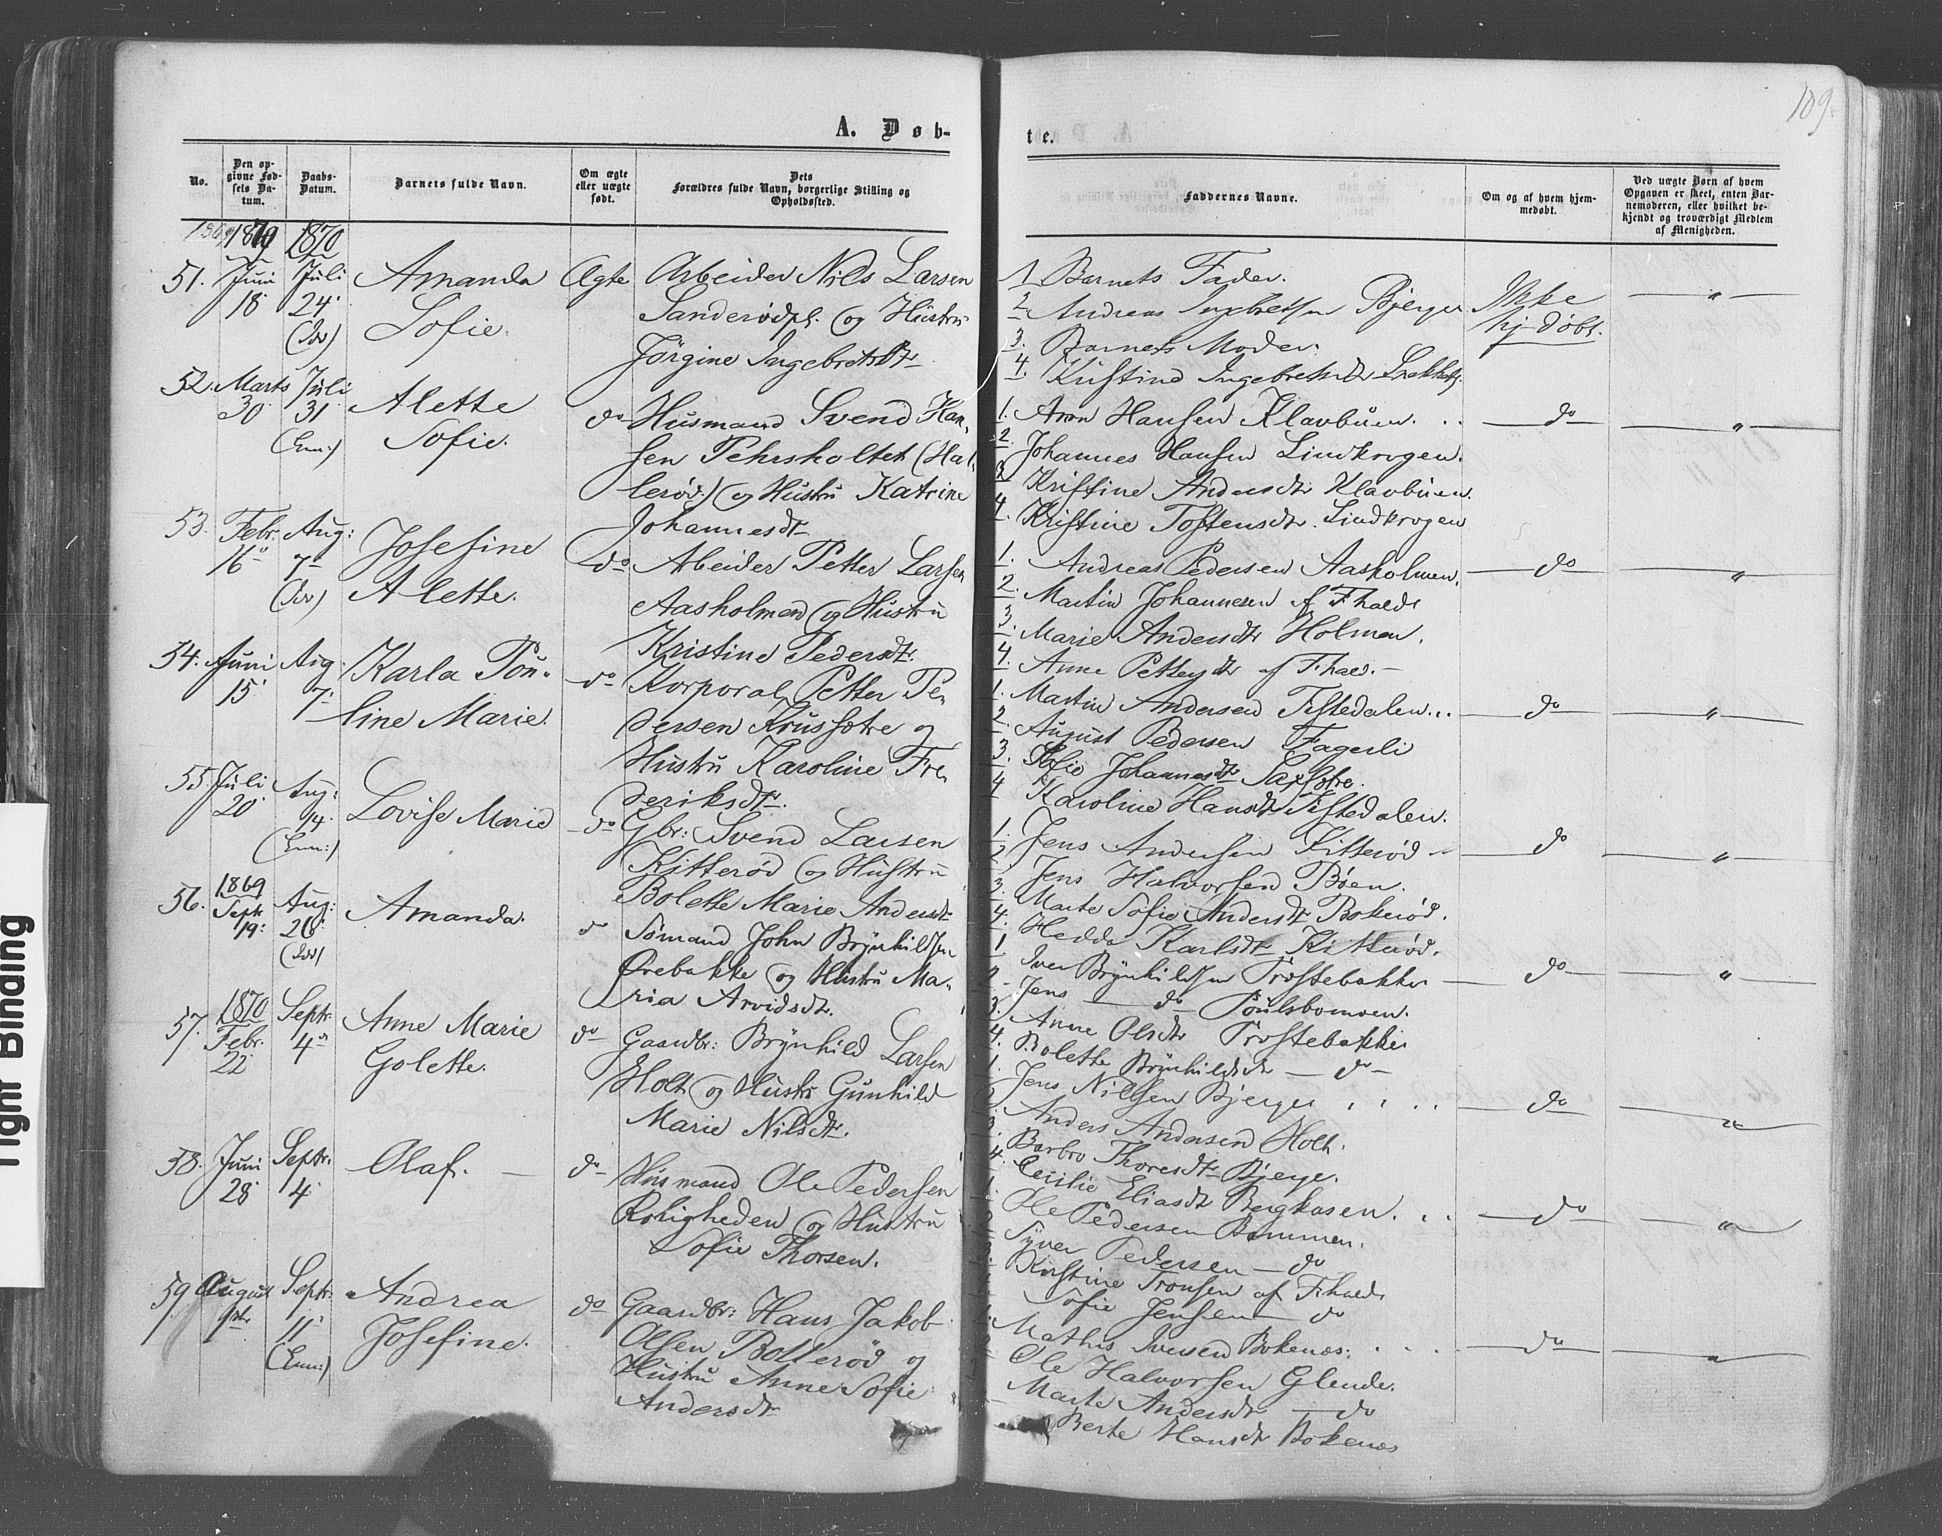 109.
A. Døb-
te.
No.
Den opgivne Fødsels Datum.
Daabs-Datum.
Barnets fulde Navn.
Om ægte eller uægte født.
Dets Forældres fulde Navn, borgerlige Stilling og Opholdssted.
Faddernes Navne.
Om og af hvem hjemmedøbt.
Ved uægte Børn af hvem Opgaven er skeet, enten Barnemoderen, eller hvilket bekjendt og troværdigt Medlem af Menigheden.
1870 1870
51. Juni 18. Juli 24.
Amanda
Sofie.
Ægte
Arbeider Nils Larsen
Sanderødpl. og Hustru
Jörgine Ingebretsdtr
1. Barnets Fader.
2. Andreas Ingebretsen Bjerge
3. Barnets Moder.
4. Kristine Ingebretsdtr
Ikke
hj. döbt.
52. Marts 30. Juli 31. (Enn:)
Alette
Sofie.
do
Husmand Svend Han-
sen Pehrsholtet (Hal-
lerød) og Hustru Katrine
Johannesdtr
1. Aron Hansen Klavbuen.
2. Johannes Hansen Lindkrogen.
3. Kristine Andersdtr Klavbuen.
4. Kristine Tostensdtr. Lindkrogen
do
53. Febr. 16 Aug: 7
Josefine
Alette.
do
Arbeider Petter Larsen
Aasholmen og Hustru
Kristine Pedersdtr.
1. Andreas Pedersen Aasholmen.
2. Martin Johannesen af Fhald
3. Marie Andersdtr Holmen.
4. Anne Pettersdtr af Fhald.
do
54. Juni 15 Aug. 7
Karla Pou-
line Marie.
do
Korporal Petter Pe-
dersen Krussætre og
Hustru Karoline Fre-
deriksdtr.
1. Martin Andersen Tistedalen.
2. August Pedersen Fagerli
3. Sofie Johannesdtr
4. Karoline Hansdtr Tistedalen.
do
55. Juli 20. Aug: 14. (Enn:)
Lovise Marie
do
Gbr: Svend Larsen
Kitterød og Hustru
Bolette Marie Andersdtr
1. Jens Andersen Kitterød
2. Jens Halvorsen Böen.
3. Marte Sofie Andersdtr Bokerød.
4. Hedda Karlsdtr Kitterød.
do
56. 1869 Septr 19. Aug: 28.
Amanda.
do
Sömand John Brynhildsen
Ørebakke og Hustru Ma-
ria Arvidsdtr.
1. Iver Brynhildsen Trostebakke
2. Jens do Poulsbomoen.
3. Anne Olsdtr Trostebakke
4. Bolette Brynhildsdtr do
do
57. 1870 Febr. 22. Septr. 4
Anne Marie
Golette.
do
Gaardbr: Brynhild Larsen
Holt og Hustru Gunhild
Marie Nilsdtr.
1. Jens Nilsen Bjerge
Anders Andersen Holt.
Barbro Thoresdtr Bjerge.
4. Cecilie Eliasdtr Bergkasen.
do
58. Juni 28. Septr. 4.
Olaf.
do
Husmand Ole Pedersen
Roligheden og Hustru
Sofie Thorsen.
Ole Pedersen Bommen.
Syver Pedersen do
Kristine Tronsen af Fhald
Sofie Jensen do
do
59. August Septr. 11. (Enn:)
Andrea
Josefine.
do
Gaardbr: Hans Jakob
Olsen Bollerød og
Hustru Anne Sofie
Andersdtr
Mathis Iversen Bokenæs.
Ole Halvorsen Glende.
Marte Andersdtr do
Berte Hansdtr Bokenæs
do
Tight Binding